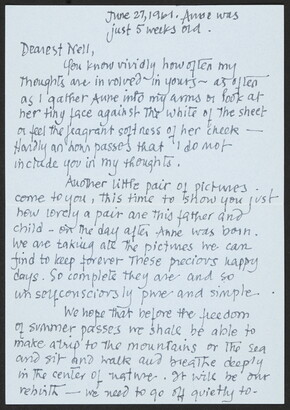 June 27, 1961. Anne was
just 5 weeks old.
Dearest Nell,
You know vividly how often my
thoughts are involved in yours ~ as often
as I gather Anne into my arms or look at
her tiny face against the white of the sheet
or feel the fragrant softness of her cheek —
Hardly an hour passes that I do not
include you in my thoughts.
Another little pair of pictures
come to you, this time to show you just
how lovely a pair are this father and
child - on the day after Anne was born.
We are taking all the pictures we can
find to keep forever these precious happy
days. So complete they are and so
unselfconsciously pure and simple.
We hope that before the freedom
of summer passes we shall be able to
make a trip to the mountains or the sea
and sit and walk and breathe deeply
in the center of nature. It will be our
rebirth — we need to go off quietly to-